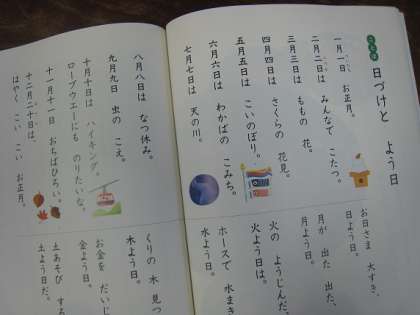 日づけと よう日
一月一日 お正月。
二月二日は みんなで こたつ。
三月三日は ももの 花。
四月四日は さくらの 花見。
五月五日は こいのぼり。
六月六日は わかばの こみち。
七月七日は 天の川。
八月八日は なつ休み。
九月九日 虫の こえ。
十月十日は ハイキング。
ロープウエーにも のりたいな。
十一月十一日 おちばひろい。
十二月二十日は、
はやく こい こい お正月。
お日さま 大すき、
日よう日。
月が 出た 出た、
月よう日。
火の ようじんだ、
火よう日は。
ホースで 水まき
水よう日。
くりの 木 見つ
木よう日。
お金を だいじ
金よう日。
土あそび する
土よう日だ。